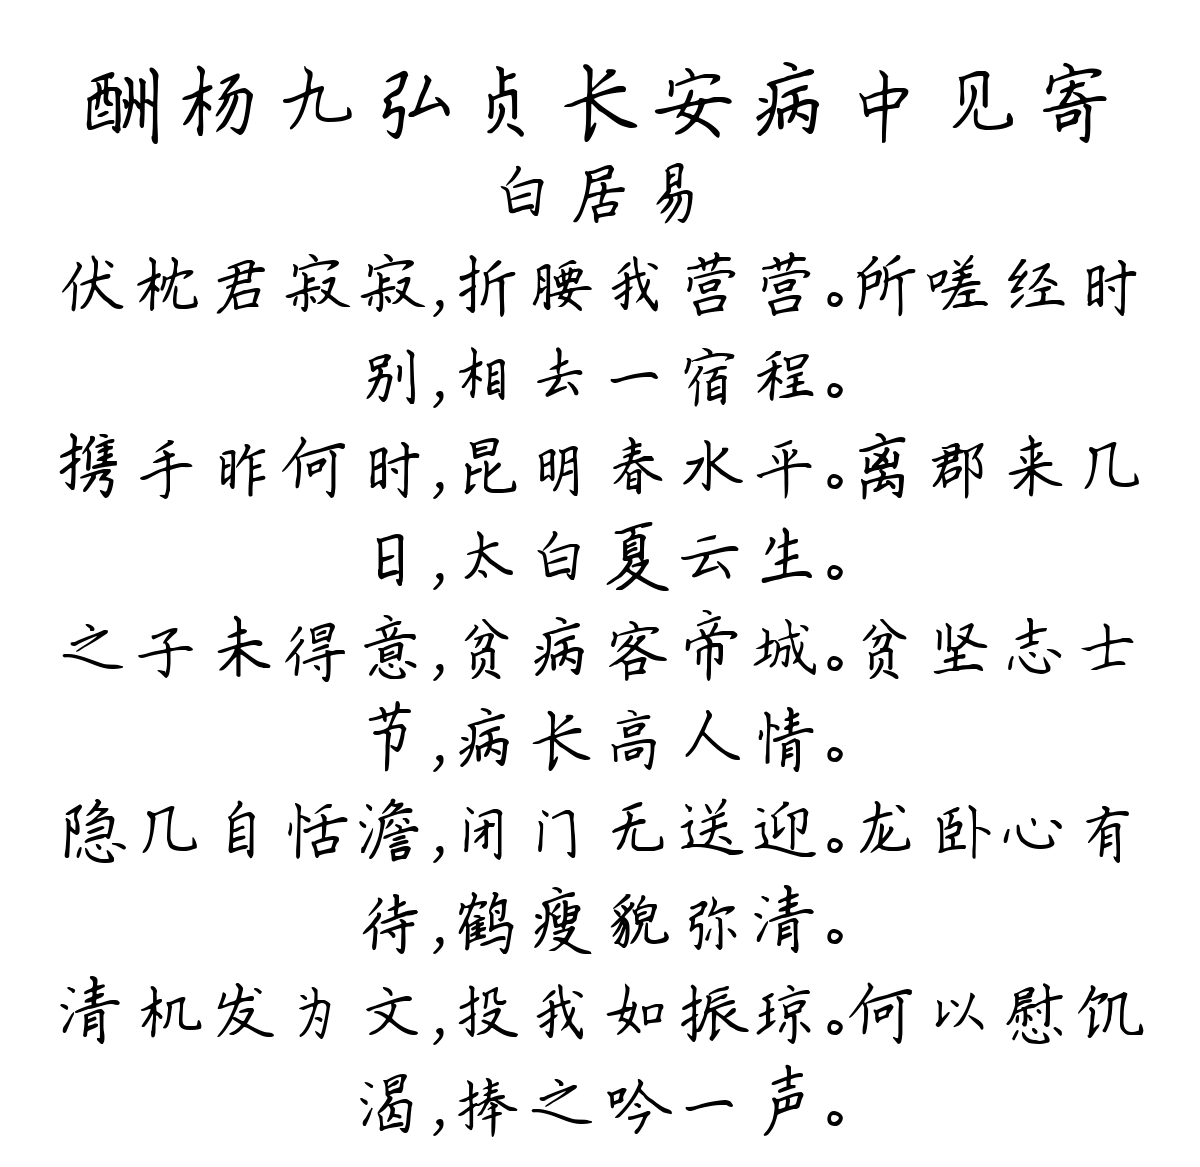 酬杨九弘贞长安病中见寄
白居易
伏枕君寂寂,折腰我营营。所嗟经时
别,相去一宿程。
携手昨何时,昆明春水平。离郡来几
日,太白夏云生。
之子未得意,贫病客帝城。贫坚志士
节,病长高人情。
隐几自恬澹,闭门无送迎。龙卧心有
待,鹤瘦貌弥清。
清机发为文,投我如振琼。何以慰饥
渴,捧之吟一声。